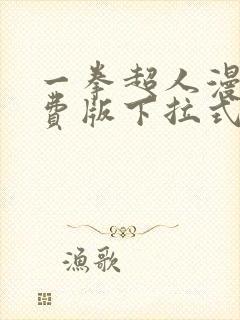 一拳超人漫
费版下拉式
渔歌